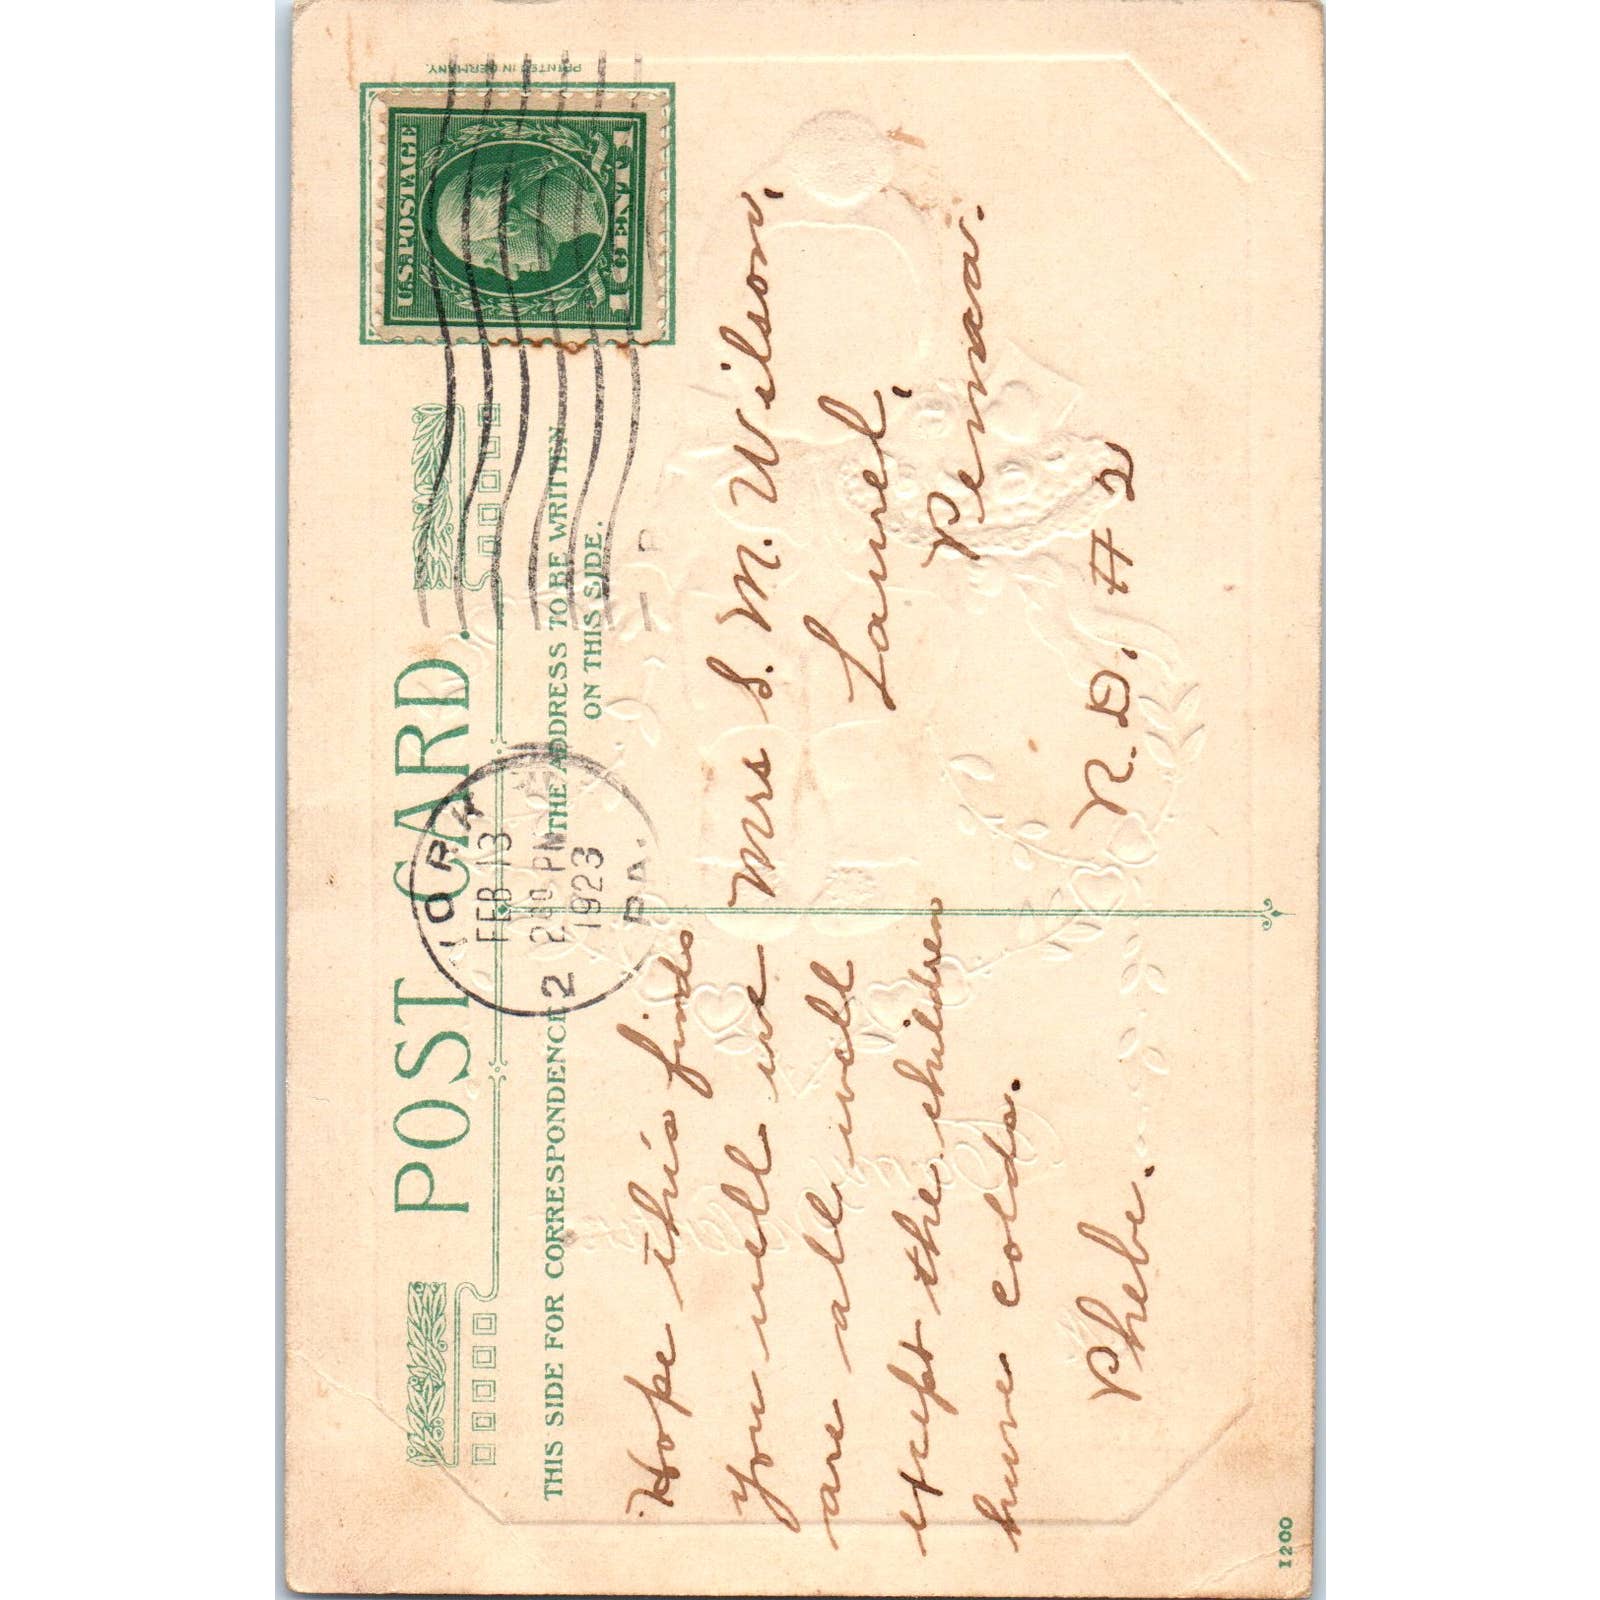 POST CARD.
THIS SIDE FOR CORRESPONDENCE
THE ADDRESS TO BE WRITTEN
ON THIS SIDE.
PRINTED IN GERMANY.
U.S. POSTAGE
1 CENT 1
YORK
FEB 13
2 PM
1923
PA.
2
Hope this finds
you well we
are all well
except the children
have colds.
Phebe.
Mrs S. M. Wilson,
Laurel,
Penna.
R. D. # 2
1200